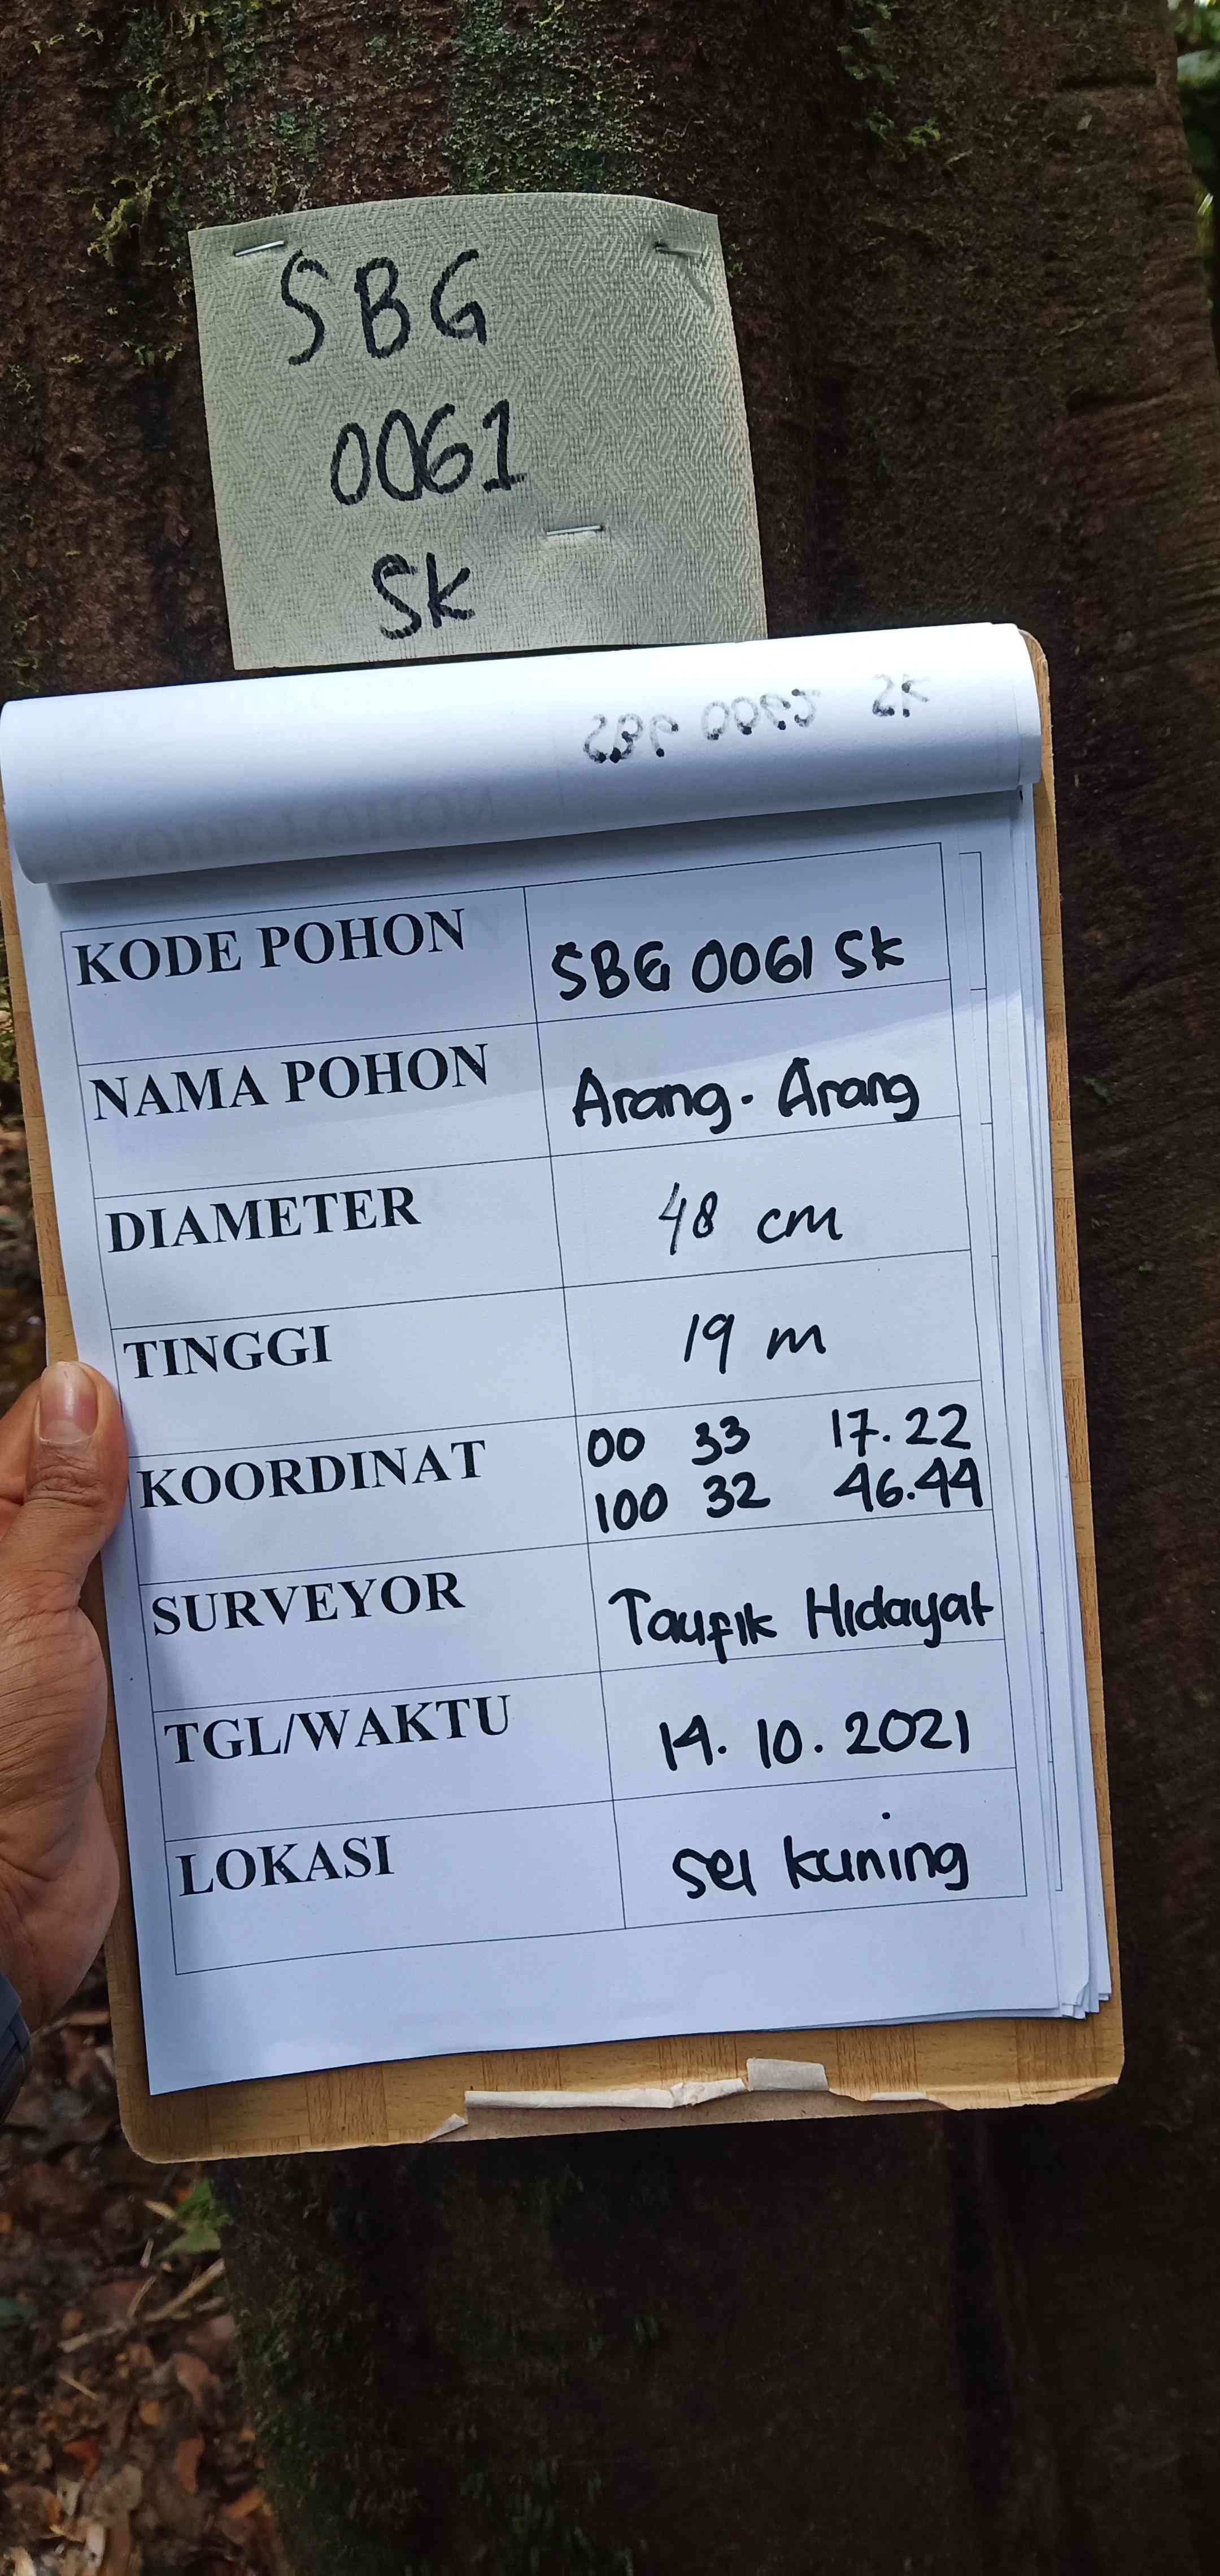 SBG
0061
SK
KODE POHON SBG 0061 SK
NAMA POHON Arang-Arang
DIAMETER 48 cm
TINGGI 19 m
KOORDINAT 00 33 17.22
100 32 46.44
SURVEYOR Taufik Hidayat
TGL/WAKTU 14.10.2021
LOKASI Sei Kuning